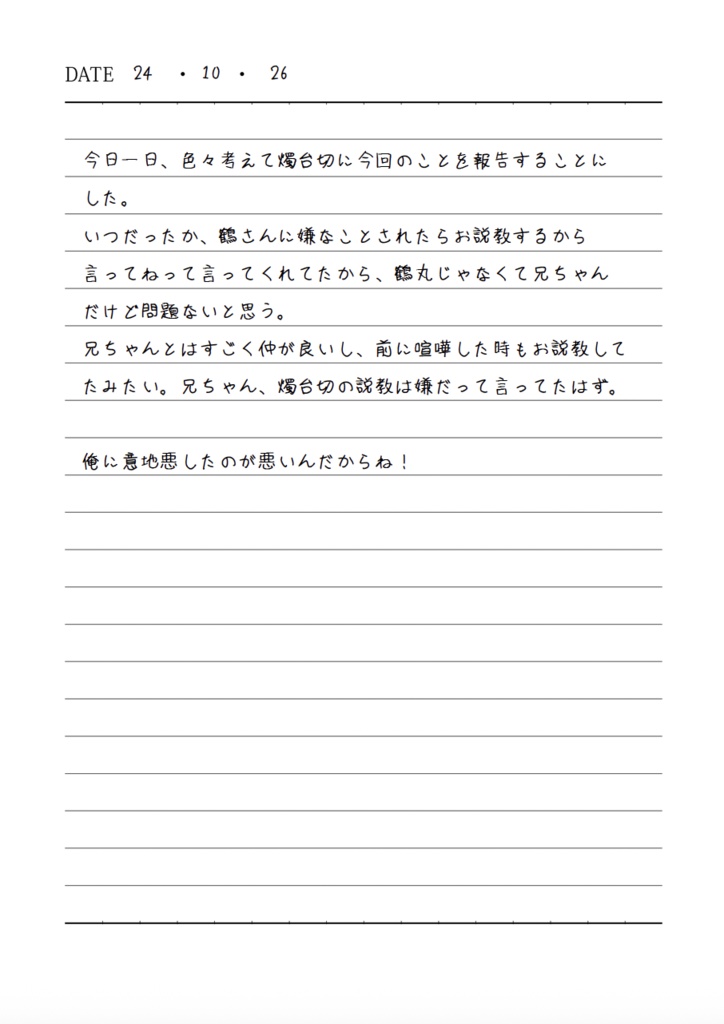 DATE 24 ・ 10 ・ 26
今日一日、色々考えて燭台切に今回のことを報告することに
した。
いつだったか、鶴さんに嫌なことされたらお説教するから
言ってねって言ってくれてたから、鶴丸じゃなくて兄ちゃん
だけど問題ないと思う。
兄ちゃんとはすごく仲が良いし、前に喧嘩した時もお説教して
たみたい。兄ちゃん、燭台切の説教は嫌だって言ってたはず。
俺に意地悪したのが悪いんだからね！